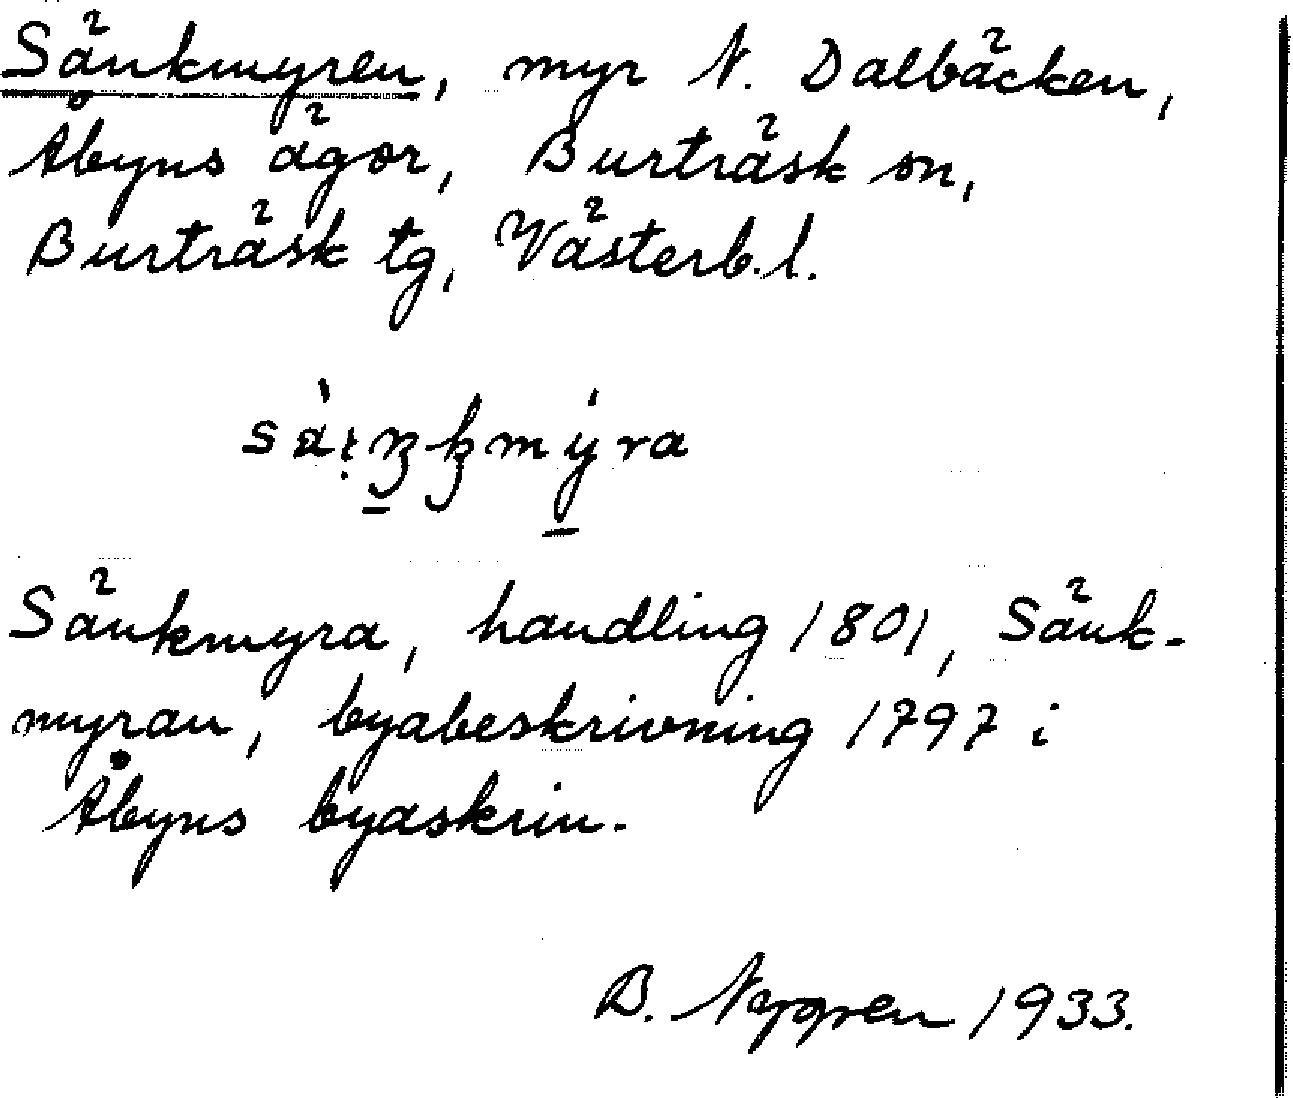 Sänkmyren, myr N. Dalbäcken,
Åbyns ägor, Burträsk sn,
Burträsk tg, Västerb.l.
Sänkmyra, handling 1801, Sänk-
myran, byabeskrivning 1797 i
Åbyns byaskrin.
B. Nygren 1933.